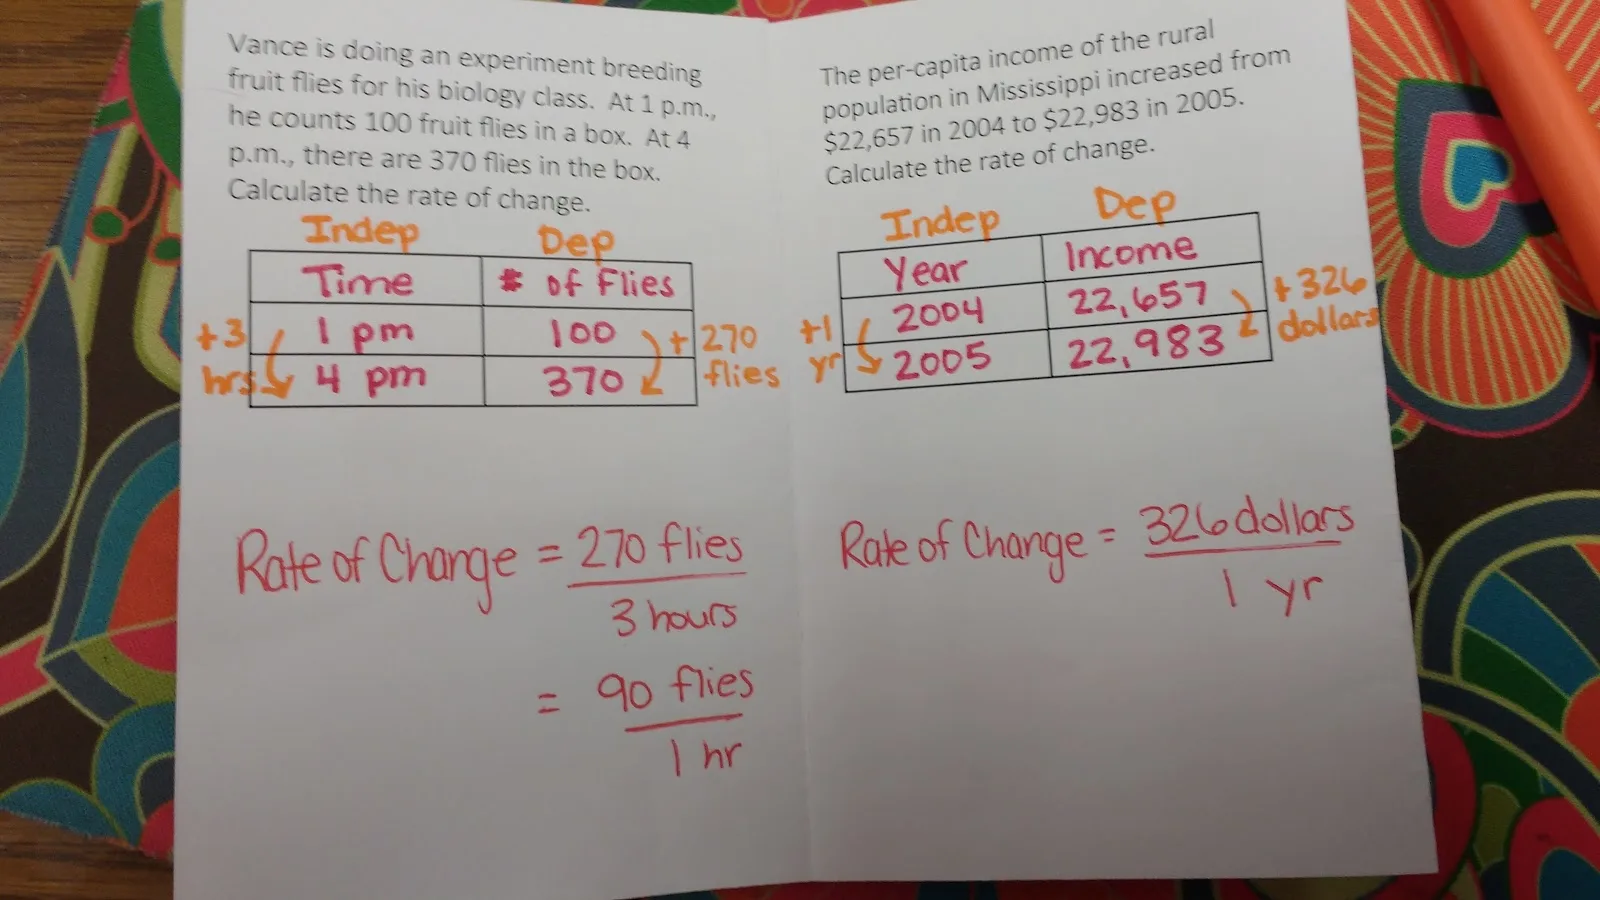 Vance is doing an experiment breeding
fruit flies for his biology class. At 1 p.m.,
he counts 100 fruit flies in a box. At 4
p.m., there are 370 flies in the box.
Calculate the rate of change.
Indep Dep
Time # of Flies
1 pm 100
4 pm 370
+3
hrs
+ 270
flies
Rate of Change = 270 flies
3 hours
= 90 flies
1 hr
The per-capita income of the rural
population in Mississippi increased from
$22,657 in 2004 to $22,983 in 2005.
Calculate the rate of change.
Indep Dep
Year Income
2004 22,657
2005 22,983
+1
yr
+326
dollars
Rate of Change = 326 dollars
1 yr